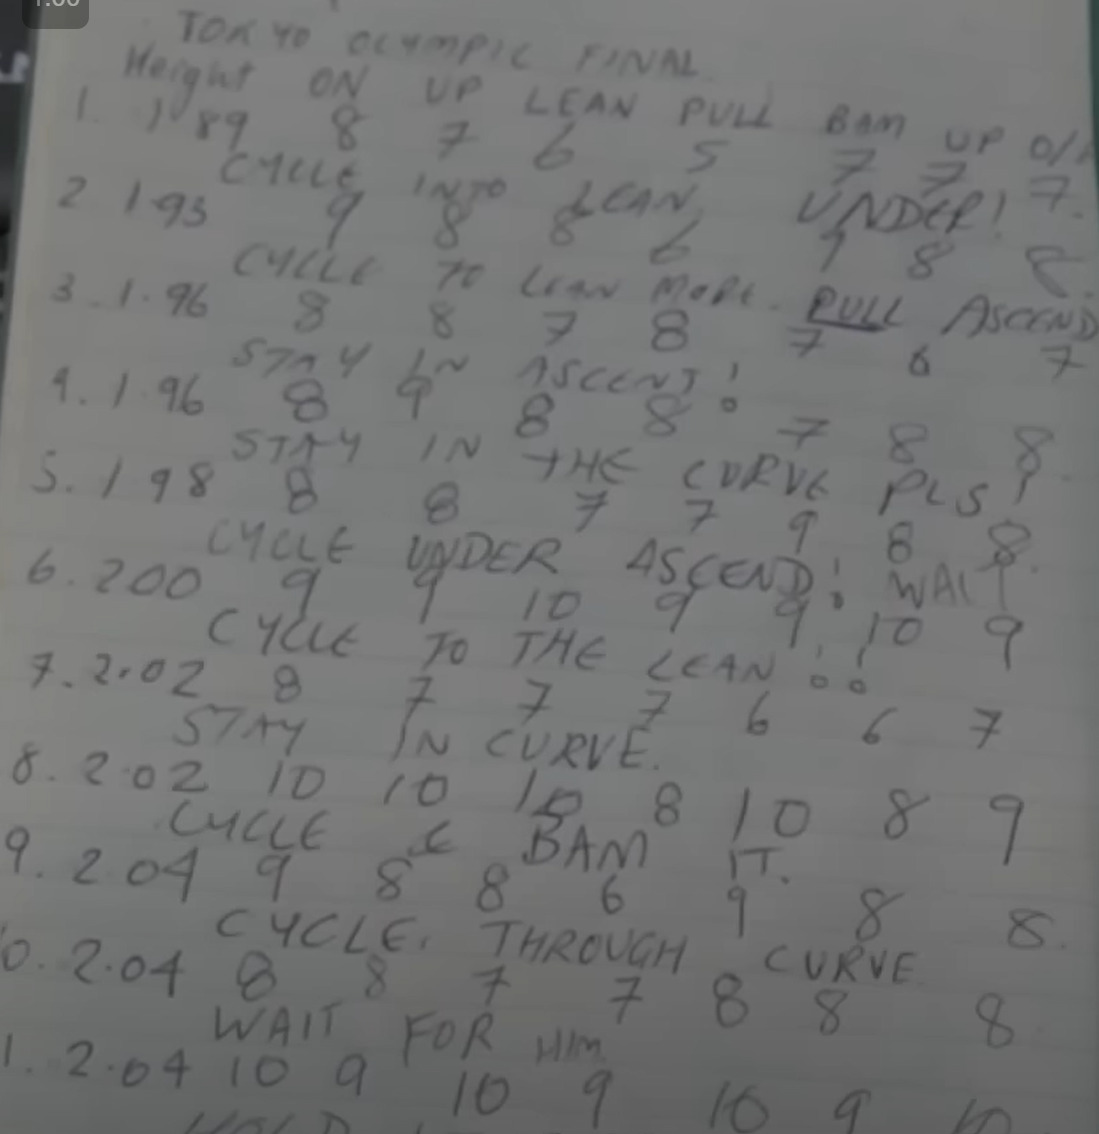 1:00
TOKYO OLYMPIC FINAL.
Height ON UP LEAN PULL BAM UP
1. 1 89 8 7 6 5 7 7 7.
CYCLE INTO LEAN, UNDER!
2 1.93 9 8 8 6 9 8 8.
CYCLE TO LEAN MORE. PULL ASCEND
3. 1.96 8 8 7 8 7 6 7
STAY IN ASCENT!
4. 1.96 8 9 8 8 7 8 8.
STAY IN THE CURVE PLS!
5. 1 98 8 8 7 7 9 8 8.
CYCLE UNDER ASCEND! WAIT
6. 200 9 9 10 9 9 10 9
CYCLE TO THE LEAN!!
7. 2.02 8 7 7 7 6 6 7
STAY IN CURVE.
8. 2.02 10 10 10 8 10 8 9
CYCLE & BAM IT.
9. 2 04 9 8 8 6 9 8 8.
CYCLE. THROUGH CURVE
0. 2.04 8 8 7 7 8 8 8
WAIT FOR HIM
1. 2.04 10 9 10 9 10 9 10
HOLD